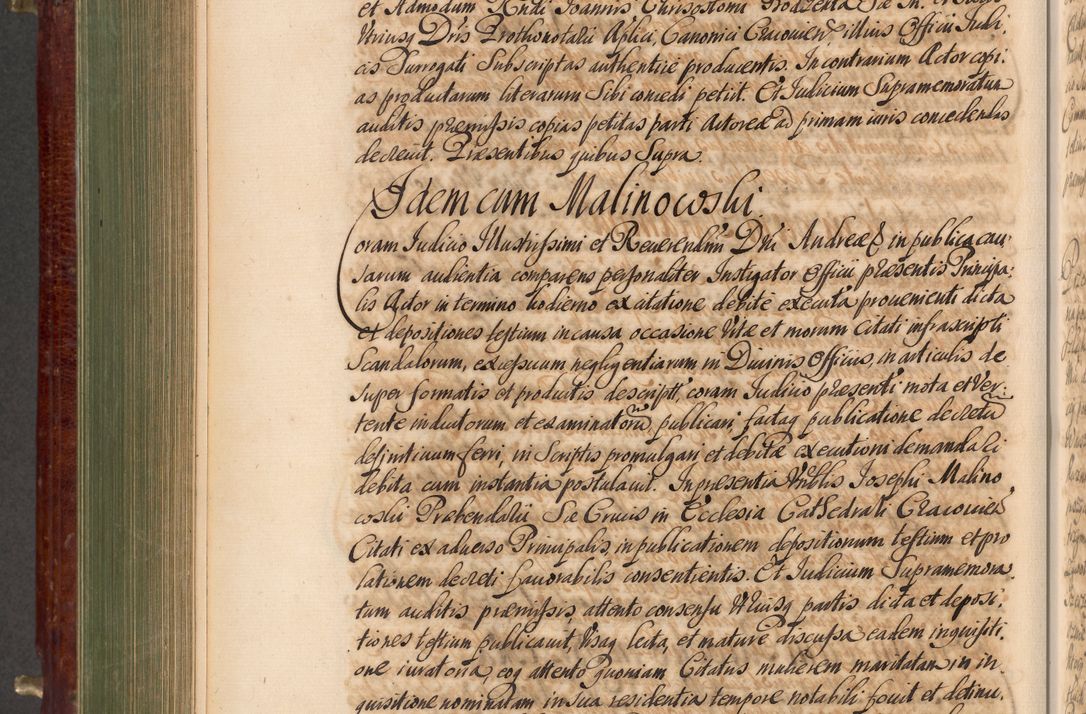 et Admodum Rndi Ioannis Chrisostomi Bodzenta Sac Th. et
Utriusq Dris Prothonotarii Aplici, Canonici Cracovien illius Officii Iudi,
cis Surrogati Subscriptas authentice producentis. In contrarium Actor copi,
as productarum literarum Sibi concedi petiit. Et Iudicium Supramemoratum
auditis præmissis copias petitas parti Actoreæ ad primam iuris concedendas
decrevit. Præsentibus quibus Supra.
Idem cum Malinowski.
Coram Iudicio Illustrissimi et Reverendissimi Dni Andreæ & in publica cau,
sarum audientia comparens personaliter Instigator Officii præsentis Principa,
lis Actor in termino hodierno ex citatione debite executa provenienti dicta
et depositiones testium in causa occasione Vitæ et morum Citati infrascripti
Scandalorum, excessuum negligentiarum in Divinis Officiis, in articulis de
super formatis et productis descript, coram Iudicio præsenti mota et Ver,
tente inductorum et examinatorum, publicari, factaq publicatione decretum
definitivum ferri, in Scriptis promulgari et debitæ executioni demandari
debita cum instantia postulavit. In præsentia Vblis Iosephi Malino
wski Præbendarii Sæ Crucis in Ecclesia Cathedrali Cracovien
Citati ex adverso Principalis, in publicationem depositionum testium et pro
lationem decreti favorabilis consentientis. Et Iudicium Supramemora,
tum auditis præmissis, attento consensu Utriusq partis dicta et deposi,
tiones testium publicavit, iisaq lecta, et mature discussa eadem inquisiti,
one iuratoria, eoq attento Quoniam Citatus mulierem maritatam in in
quisitione nominatam in Sua residentia tempore notabili fovit et detinu,